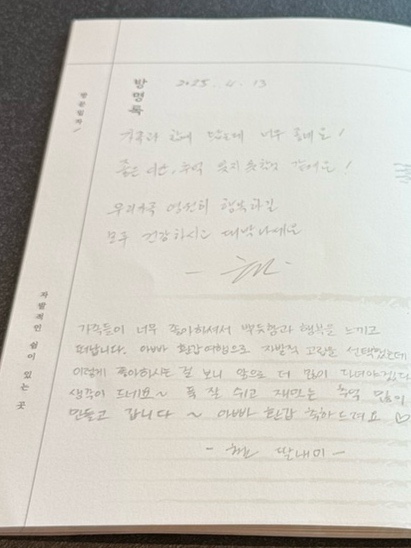 방명록
2025. 4. 13
가족과 함께 너무 좋네요!
좋은 시간, 추억
우리가족 영원히 행복하길
모두 건강하시고 대박나세요
자발적인 쉼이 있는 곳
가족들이 너무 좋아하셔서 뿌듯함과 행복을 느끼고
떠납니다. 아빠 환갑여행으로 자발적 고립을 선택했는데
이렇게 좋아하시는 걸 보니 앞으로 더 많이 다녀야겠다
생각이 드네요~ 푹 잘 쉬고 재밌는 추억 많이
만들고 갑니다~ 아빠 환갑 축하드려요♡
딸내미 -